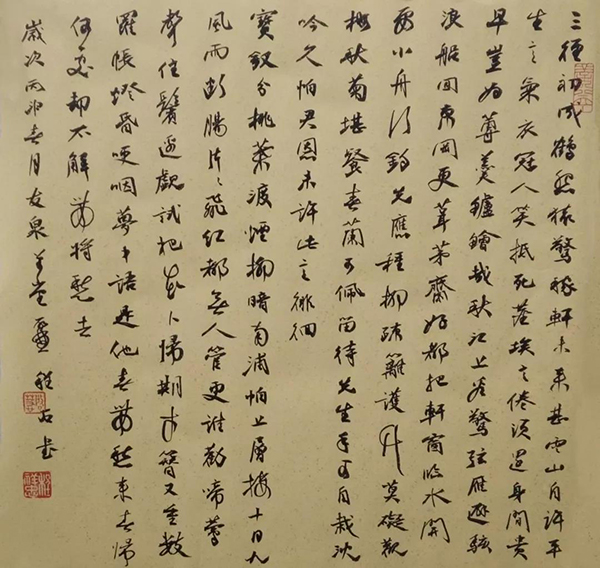 三徑初成鶴怨猿驚稼軒未來甚雲山自許平
生意氣衣冠人笑抵死塵埃意倦須還身閒貴
早豈為蓴羹鱸鱠哉秋江上看驚弦雁避駭
浪船回東岡更葺茅齋好都把軒窗臨水開
要小舟行釣先應種柳疏籬護竹莫礙觀
梅秋菊堪餐春蘭可佩留待先生手自栽沈
吟久怕君恩未許此意徘徊
寶釵分桃葉渡煙柳暗南浦怕上層樓十日九
風雨斷腸片片飛紅都無人管更誰勸啼鶯
聲住鬢邊覷試把花卜歸期才簪又重數
羅帳燈昏哽咽夢中語是他春帶愁來春歸
何處却不解帶將愁去
歲次丙申春月友泉草堂程石書